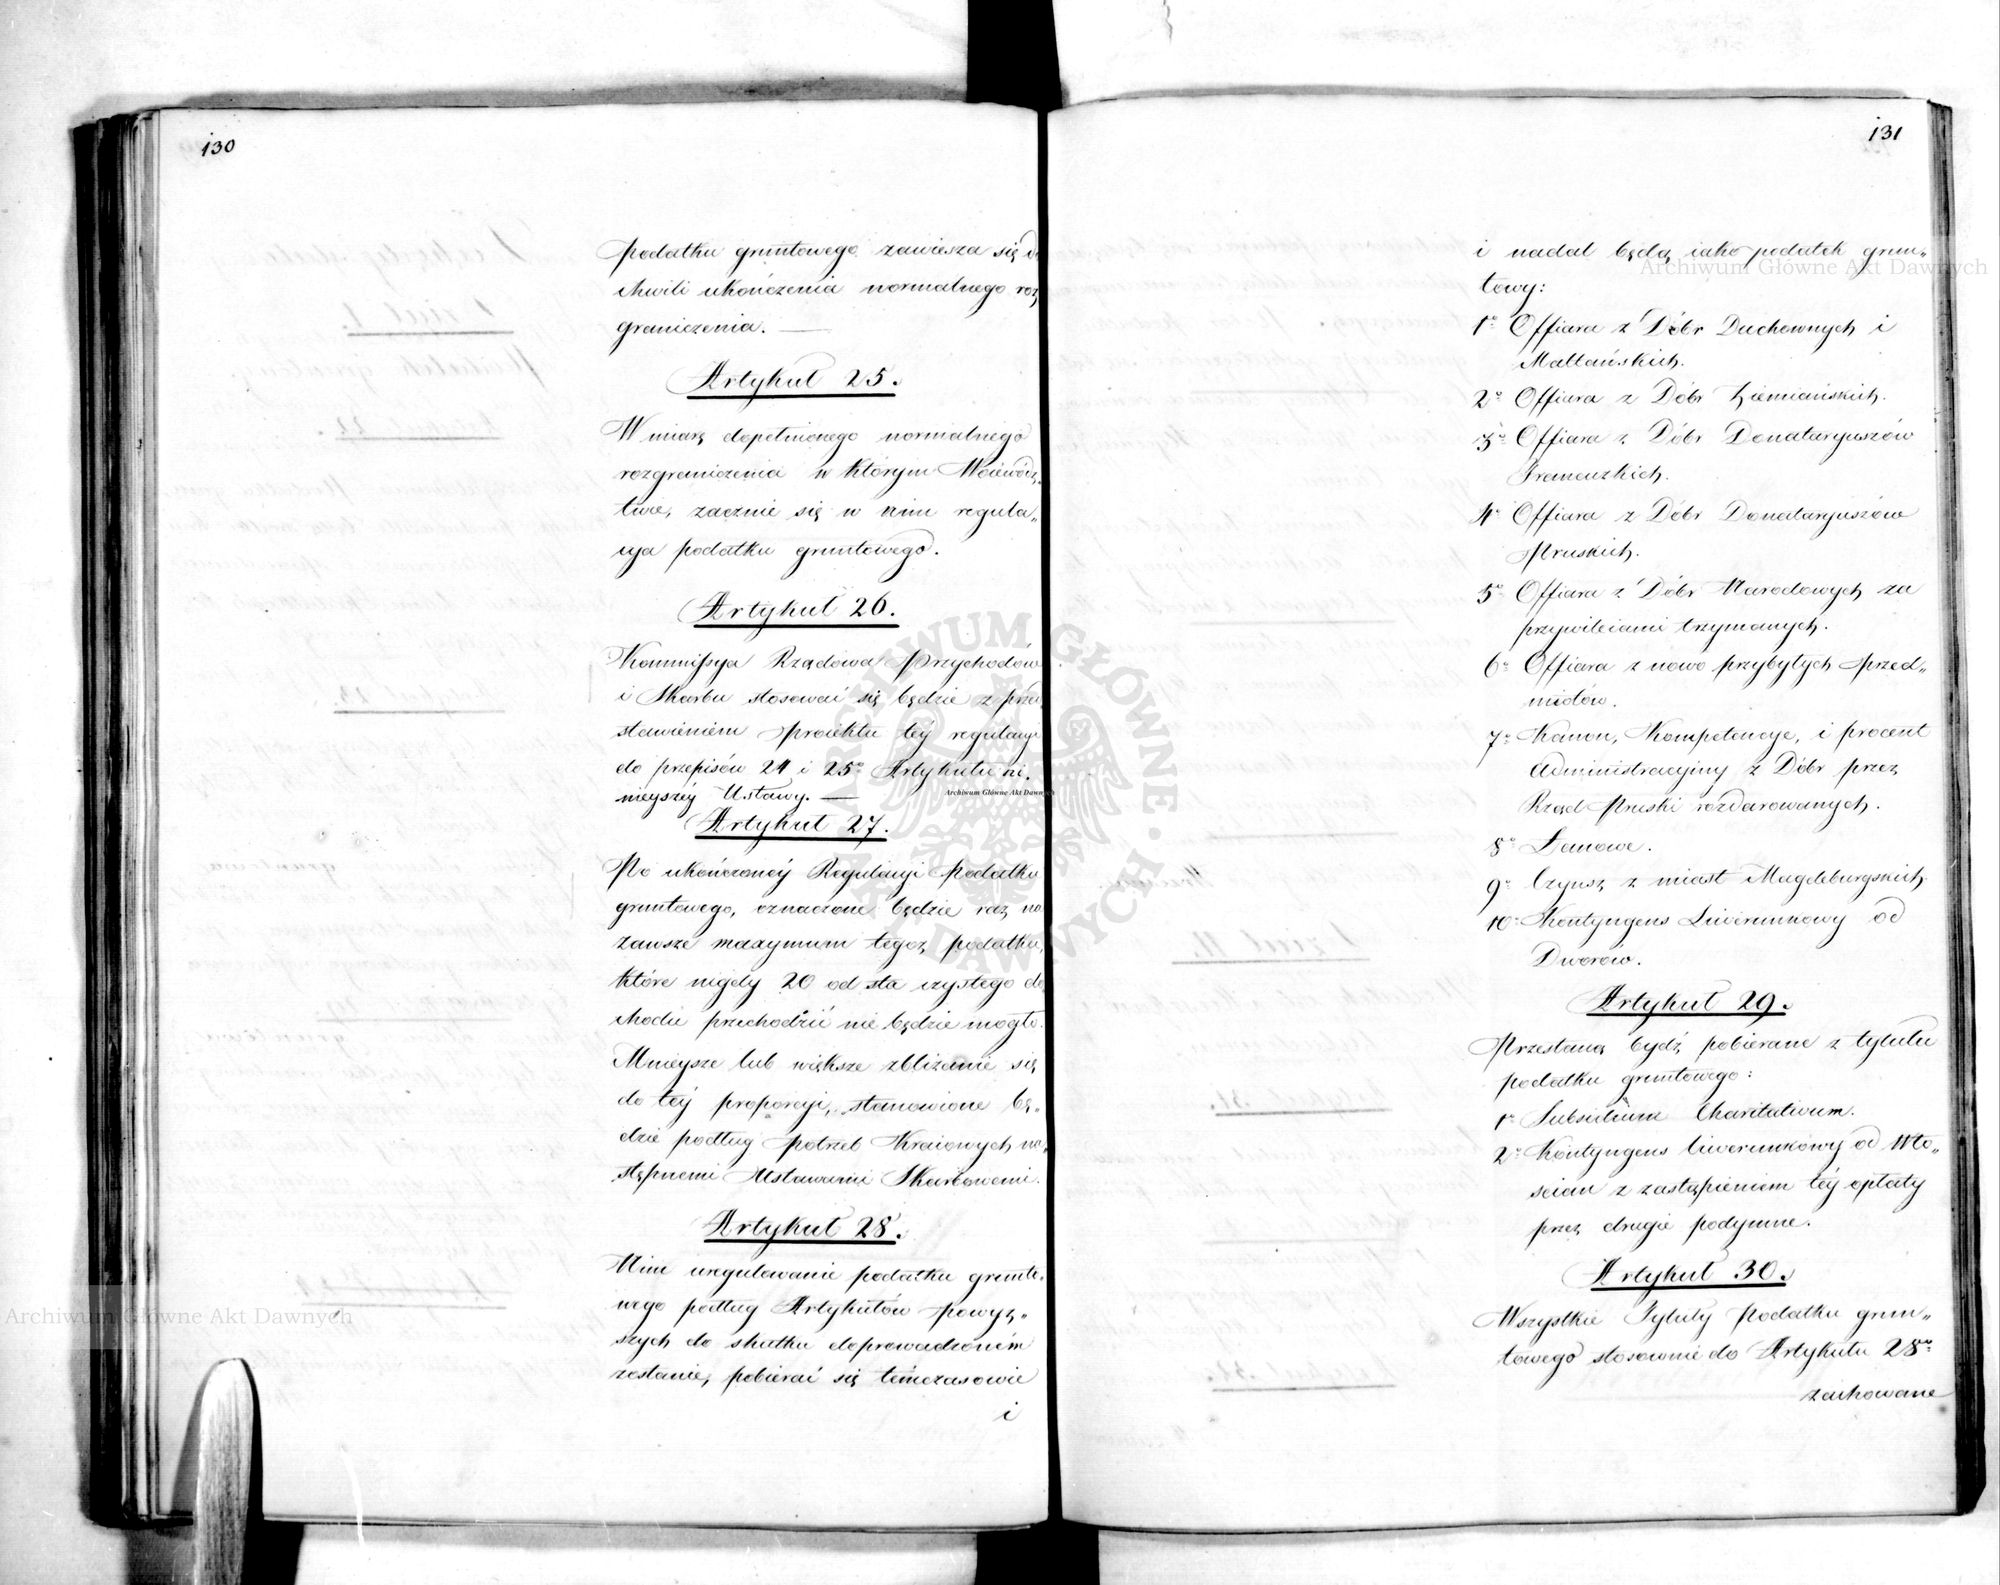 130
podatku gruntowego zawiesza się d
chwili ukończenia normalnego roz
graniczenia. —
Artykuł 25.
W miarę dopełnionego normalnego
rozgraniczenia w którym Wojewódz„
twie, zacznie się w nim regula„
cya podatku gruntowego.
Artykuł 26.
Kommissya Rządowa Przychodów
i Skarbu stosować się będzie z prze
stawieniem proiektu téy regulacyi
do przepisów 24 i 25go Artykułu ni.
nieyszéy Ustawy. —
Artykuł 27.
Po ukończonéy Regulacyi Podatku
gruntowego, oznaczone będzie raz na
zawsze maxymum tegoż podatku,
które nigdy 20 od sta czystego do
chodu przechodzić nie będzie mogło.
Mnieysze lub większe zbliżenie się
do téy proporcyi, stanowione bę„
dzie podług potrzeb Kraiowych na„
stępnemi Ustawami Skarbowemi.
Artykuł 28.
Nim uregulowanie podatku grunto„
wego podług Artykułów powyż„
szych do skutku doprowadzoném
zostanie, pobierać się témczasowie
i
131
i nadal będą iako podatek grun„
towy:
1o Offiara z Dóbr Duchownych i
Maltańskich.
2o Offiara z Dóbr Ziemiańskich.
3o Offiara z Dóbr Donataryuszów
Francuzkich.
4o Offiara z Dóbr Donataryuszów
Pruskich.
5o Offiara z Dóbr Narodowych za
przywileiami trzymanych.
6o Offiara z nowo przybyłych przed„
miotów.
7o Kanon, Kompetencye, i procent
Administracyiny z Dóbr przez
Rząd Pruski rozdarowanych.
8o Łanowe.
9o Czynsz z miast Magdeburgskich.
10o Kontyngens Liwerunkowy od
Dworów.
Artykuł 29.
Przestaną bydź pobierane z tytułu
podatku gruntowego:
1o Subsidium Charitativum.
2o Kontyngens liwerunkowy od Wło„
ścian z zastąpieniem téy opłaty
przez drugie podymne.
Artykuł 30.
Wszystkie Tytuły Podatku grun„
towego stosownie do Artykułu 28go
zachowane
Archiwum Główne Akt Dawnych
Archiwum Główne Akt Dawnych
Archiwum Główne Akt Dawnych
ARCHIWUM GŁÓWNE AKT DAWNYCH